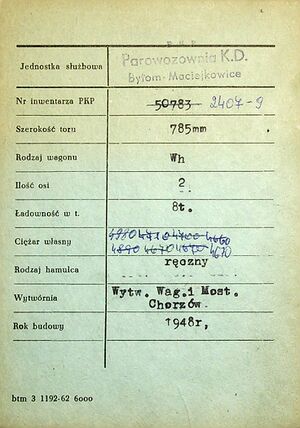 P K P
Jednostka służbowa Parowozownia K.D.
bytom-Maciejkowice
Nr inwentarza PKP 50783 2407-9
Szerokość toru 785mm
Rodzaj wagonu Wh
Ilość osi 2.
Ładowność w t. 8t.
4710 4700 4660
Ciężar własny 4890 4670 4670 4670
Rodzaj hamulca ręczny
Wytwórnia Wytw. Wag.i Most.
Chorzów.
Rok budowy 1948r,
btm 3 1192-62 6000